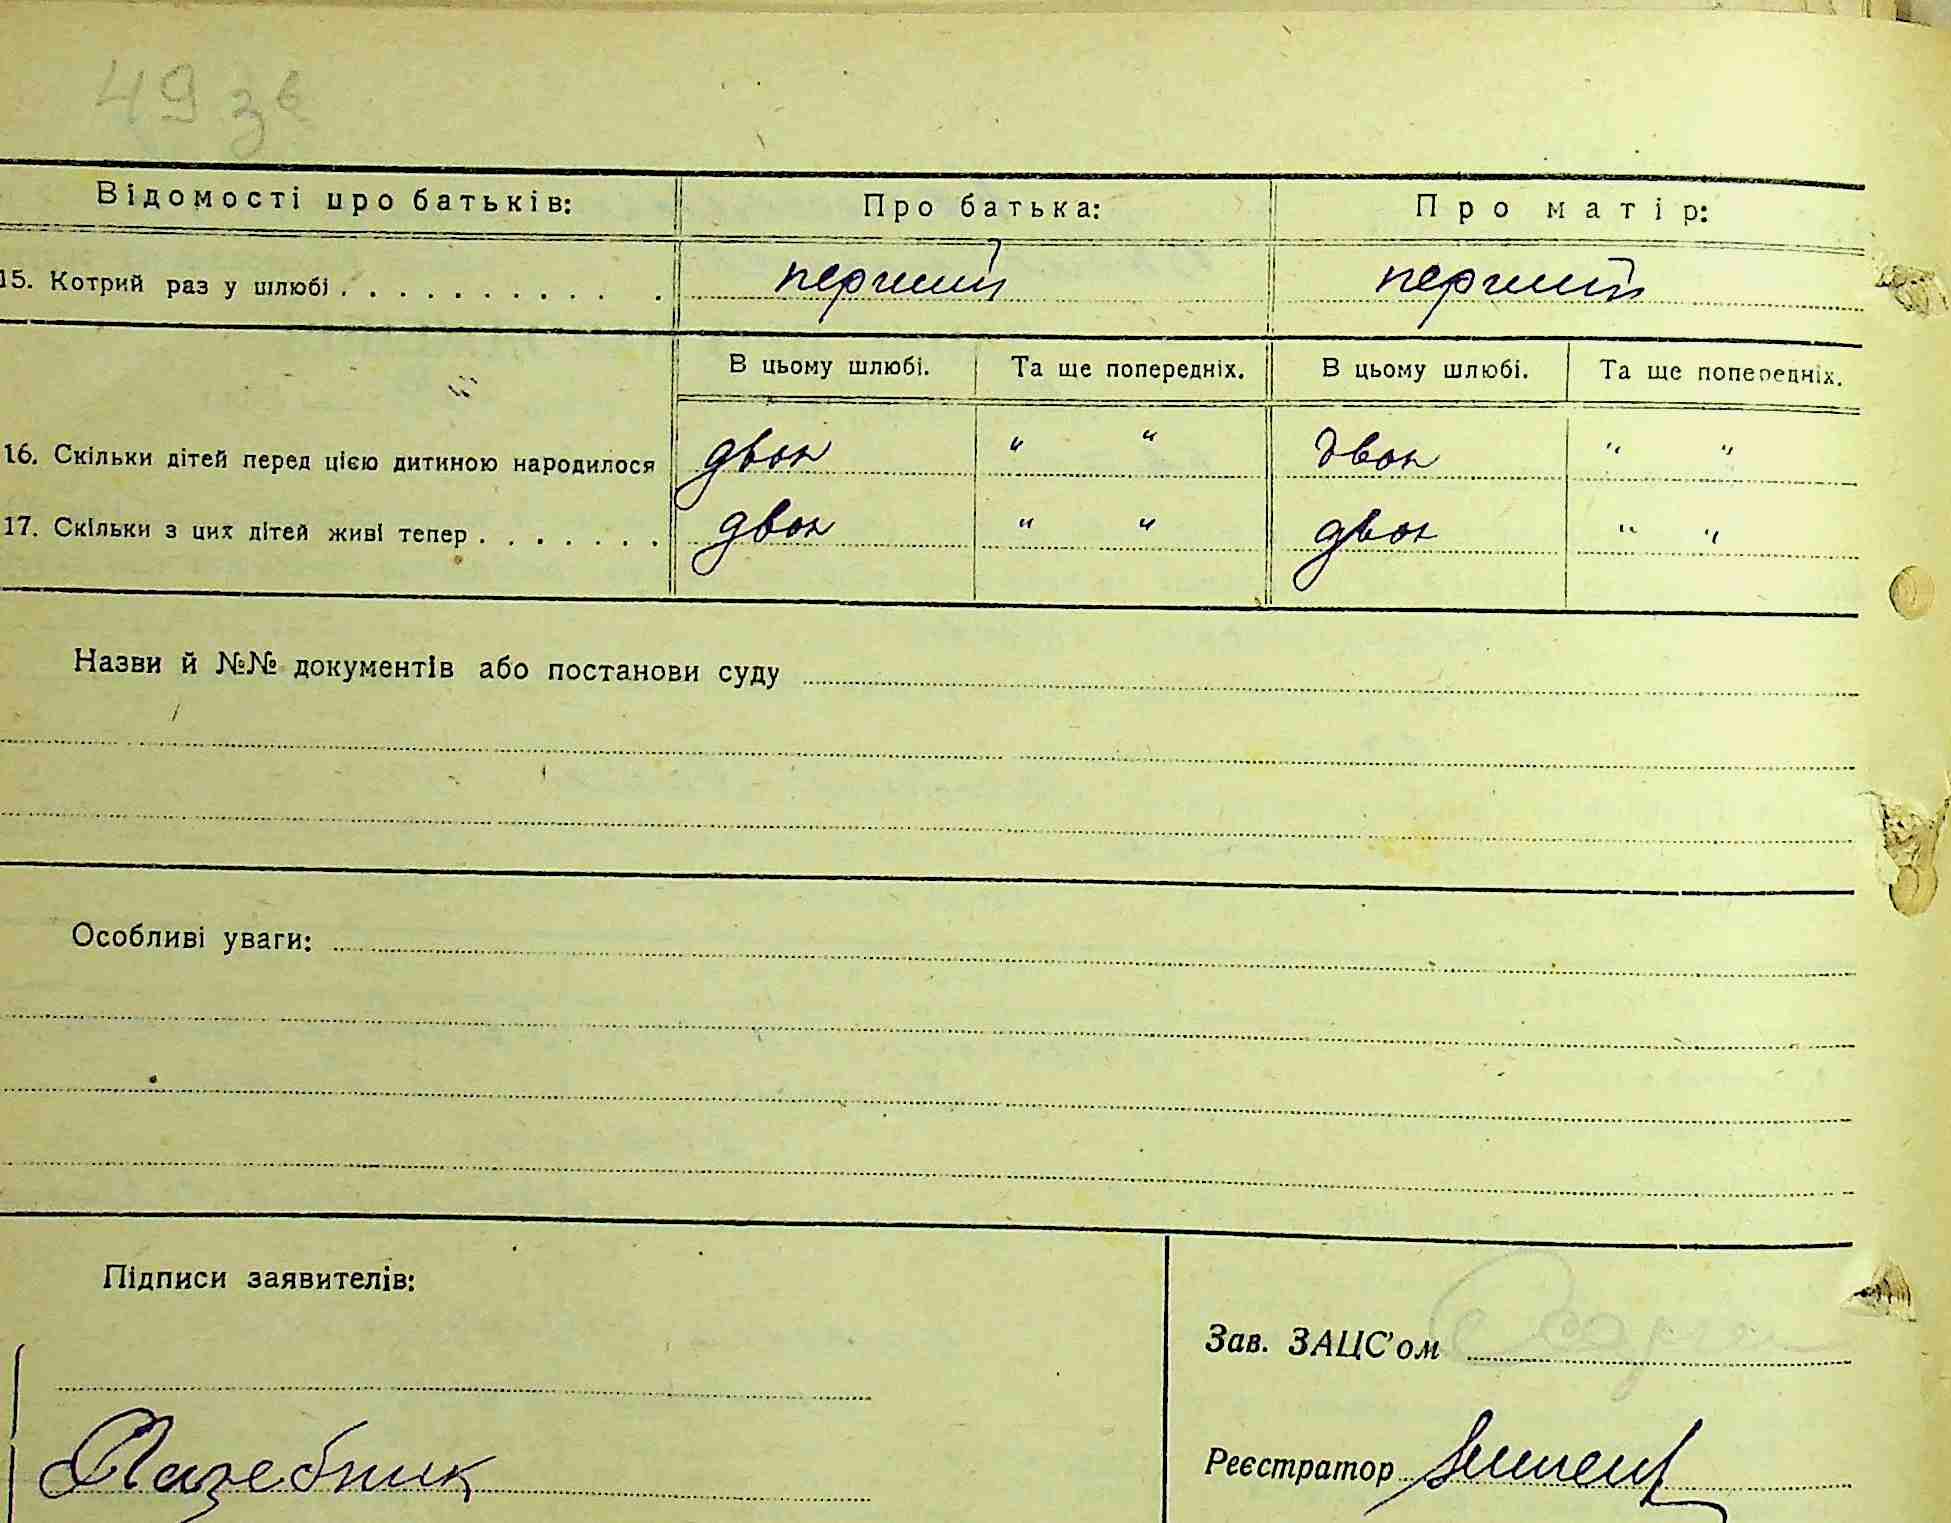 49 зв
Відомості про батьків: Про батька: Про матір:
15. Котрий раз у шлюбі . . . . . . . . . . . перший перший
В цьому шлюбі. Та ще попередніх. В цьому шлюбі. Та ще попередніх.
16. Скільки дітей перед цією дитиною народилося двох " " двох " "
17. Скільки з цих дітей живі тепер . . . . . . . двох " " двох " "
Назви й №№ документів або постанови суду
Особливі уваги:
Підписи заявителів:
Зав. ЗАЦС'ом
Лазебник
Реєстратор